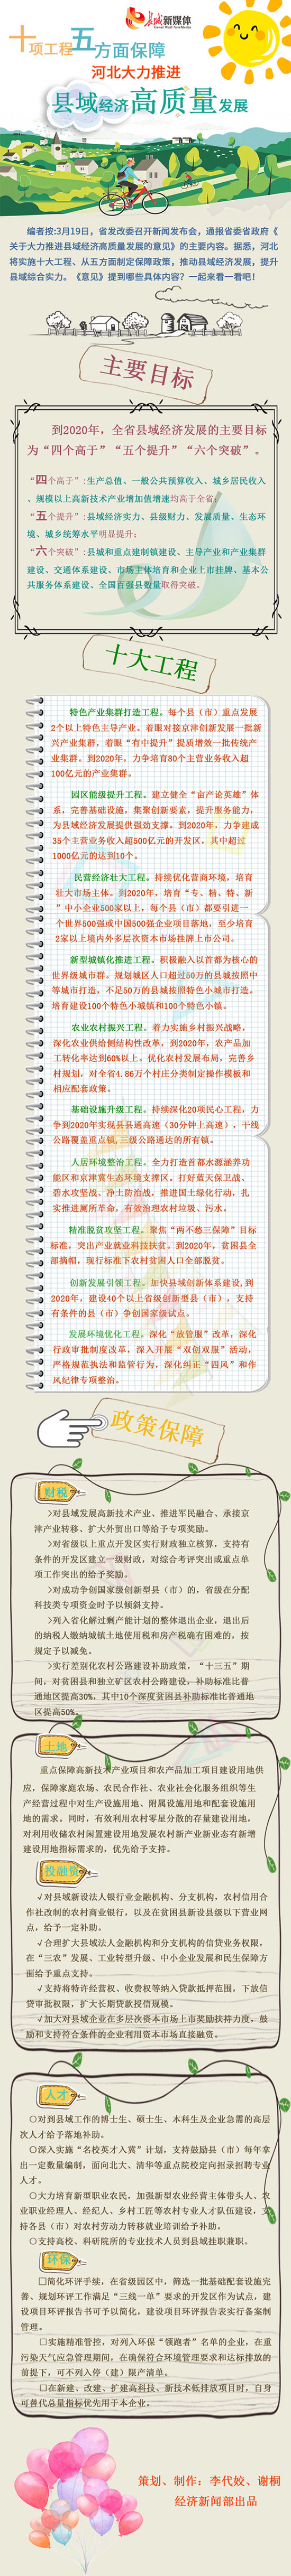 长城新媒体
Great Wall New Media
十项工程五方面保障
河北大力推进
县域经济高质量发展
编者按:3月19日，省发改委召开新闻发布会，通报省委省政府《
关于大力推进县域经济高质量发展的意见》的主要内容。据悉，河北
将实施十大工程、从五方面制定保障政策，推动县域经济发展，提升
县域综合实力。《意见》提到哪些具体内容？一起来看一看吧！
主要目标
到2020年，全省县域经济发展的主要目标
为“四个高于”“五个提升”“六个突破”。
“四个高于”:生产总值、一般公共预算收入、城乡居民收入
、规模以上高新技术产业增加值增速均高于全省；
“五个提升”:县域经济实力、县级财力、发展质量、生态环
境、城乡统筹水平明显提升；
“六个突破”:县城和重点建制镇建设、主导产业和产业集群
建设、交通体系建设、市场主体培育和企业上市挂牌、基本公
共服务体系建设、全国百强县数量取得突破。
十大工程
特色产业集群打造工程。每个县（市）重点发展
2个以上特色主导产业。着眼对接京津创新发展一批新
兴产业集群，着眼“有中提升”提质增效一批传统产
业集群。到2020年，力争培育80个主营业务收入超
100亿元的产业集群。
园区能级提升工程。建立健全“亩产论英雄”体
系，完善基础设施，集聚创新要素，提升服务能力，
为县域经济发展提供强劲支撑。到2020年，力争建成
35个主营业务收入超500亿元的开发区，其中超过
1000亿元的达到10个。
民营经济壮大工程。持续优化营商环境，培育
壮大市场主体。到2020年，培育“专、精、特、新
”中小企业500家以上，每个县（市）都要引进一
个世界500强或中国500强企业项目落地，至少培育
2家以上境内外多层次资本市场挂牌上市公司。
新型城镇化推进工程。积极融入以首都为核心的
世界级城市群。规划城区人口超过50万的县城按照中
等城市打造，不足50万的县城按照特色小城市打造。
培育建设100个特色小城镇和100个特色小镇。
农业农村振兴工程。着力实施乡村振兴战略，
深化农业供给侧结构性改革，到2020年，农产品加
工转化率达到60%以上。优化农村发展布局，完善乡
村规划，对全省4.86万个村庄分类制定操作模板和
相应配套政策。
基础设施升级工程。持续深化20项民心工程，力
争到2020年实现县县通高速（30分钟上高速），干线
公路覆盖重点镇，三级公路通达的所有镇。
人居环境整治工程。全力打造首都水源涵养功
能区和京津冀生态环境支撑区。打好蓝天保卫战、
碧水攻坚战、净土防治战，推进国土绿化行动，扎
实推进厕所革命，有效治理农村垃圾、污水。
精准脱贫攻坚工程。聚焦“两不愁三保障”目标
标准，突出产业就业科技扶贫。到2020年，贫困县全
部摘帽，现行标准下农村贫困人口全部脱贫。
创新发展引领工程。加快县域创新体系建设，到
2020年，建设40个以上省级创新型县（市），支持
有条件的县（市）争创国家级试点。
发展环境优化工程。深化“放管服”改革，深化
行政审批制度改革，深入开展“双创双服”活动，
严格规范执法和监管行为，深化纠正“四风”和作
风纪律专项整治。
政策保障
财税
>对县域发展高新技术产业、推进军民融合、承接京
津产业转移、扩大外贸出口等给予专项奖励。
>对省级以上重点开发区实行财政独立核算，支持有
条件的开发区建立一级财政，对综合考评突出或重点单
项工作突出的给予奖励。
>对成功争创国家级创新型县（市）的，省级在分配
科技类专项资金时予以倾斜支持。
>列入省化解过剩产能计划的整体退出企业，退出后
的纳税人缴纳城镇土地使用税和房产税确有困难的，按
规定予以减免。
>实行差别化农村公路建设补助政策，“十三五”期
间，对贫困县和独立矿区农村公路建设，补助标准比普
通地区提高30%，其中10个深度贫困县补助标准比普通地
区提高50%。
土地
重点保障高新技术产业项目和农产品加工项目建设用地供
应，保障家庭农场、农民合作社、农业社会化服务组织等生
产经营过程中对生产设施用地、附属设施用地和配套设施用
地的需求。同时，有效利用农村零星分散的存量建设用地，
对利用收储农村闲置建设用地发展农村新产业新业态有新增
建设用地指标需求的，优先给予支持。
投融资
√对县域新设法人银行业金融机构、分支机构，农村信用合
作社改制的农村商业银行，以及在贫困县新设县级以下营业网
点，给予一定补助。
√合理扩大县域法人金融机构和分支机构的信贷业务权限，
在“三农”发展、工业转型升级、中小企业发展和民生保障方
面给予重点支持。
√支持将特许经营权、收费权等纳入贷款抵押范围，下放信
贷审批权限，扩大长期贷款授信规模。
√加大对县域企业在多层次资本市场上市奖励扶持力度，鼓
励和支持符合条件的企业利用资本市场直接融资。
人才
○对到县域工作的博士生、硕士生、本科生及企业急需的高层
次人才给予落地补助。
○深入实施“名校英才入冀”计划，支持鼓励县（市）每年拿
出一定数量编制，面向北大、清华等重点院校定向招录招聘专业
人才。
○大力培育新型职业农民，加强新型农业经营主体带头人、农
业职业经理人、经纪人、乡村工匠等农村专业人才队伍建设，支
持各县（市）对农村劳动力转移就业培训给予补助。
○支持高校、科研院所的专业技术人员到县域挂职兼职。
环保
□简化环评手续，在省级园区中，筛选一批基础配套设施完
善、规划环评工作满足“三线一单”要求的开发区作为试点，建
设项目环评报告书可予以简化，建设项目环评报告表实行备案制
管理。
□实施精准管控，对列入环保“领跑者”名单的企业，在重
污染天气应急管理期间，在确保符合环境管理要求和达标排放的
前提下，可不列入停（建）限产清单。
□在新建、改建、扩建高科技、新技术低排放项目时，自身
可替代总量指标优先用于本企业。
策划、制作：李代姣、谢桐
经济新闻部出品